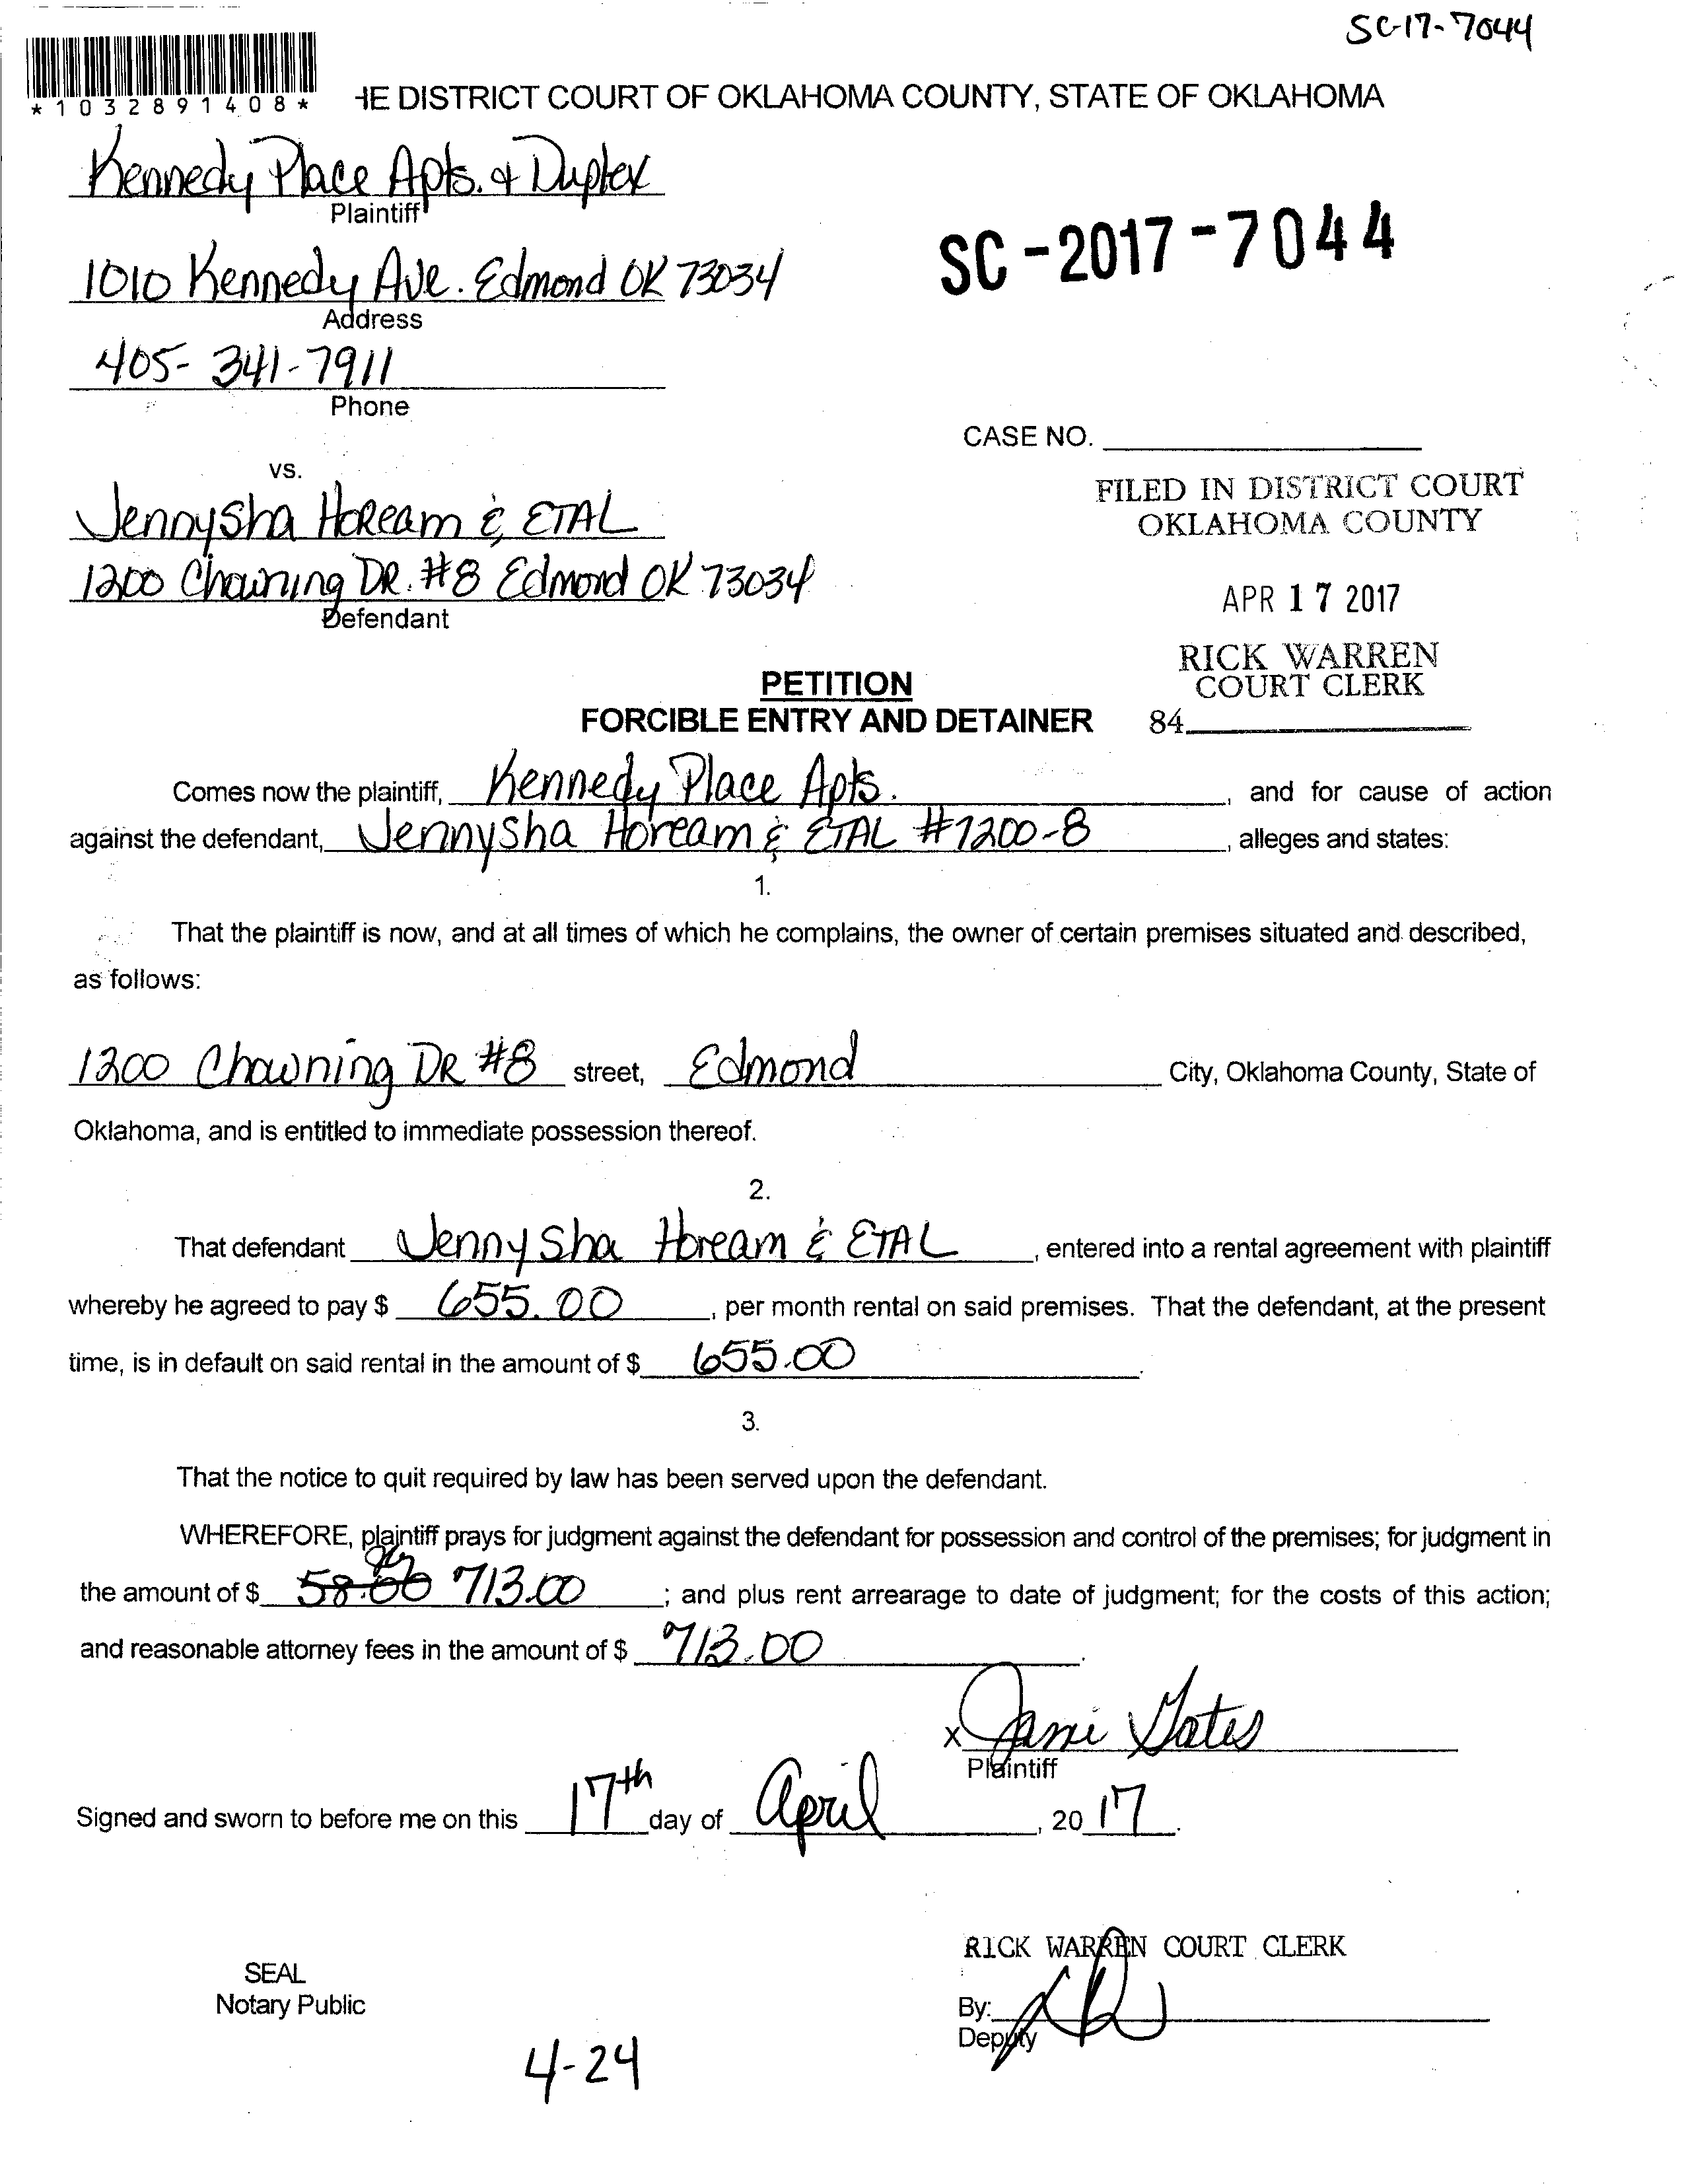 SC-17-7044
*1032891408*
HE DISTRICT COURT OF OKLAHOMA COUNTY, STATE OF OKLAHOMA
Kennedy Place Apts. & Duplex
Plaintiff
1010 Kennedy Ave. Edmond OK 73034
Address
SC-2017-7044
405-341-7911
Phone
CASE NO.
vs.
Jennysha Hoream & ETAL
1200 Chowning DR. #8 Edmond OK 73034
Defendant
FILED IN DISTRICT COURT
OKLAHOMA COUNTY
APR 17 2017
RICK WARREN
COURT CLERK
84
PETITION
FORCIBLE ENTRY AND DETAINER
Comes now the plaintiff, Kennedy Place Apts. , and for cause of action
against the defendant, Jennysha Hoream & ETAL #1200-8 , alleges and states:
1.
That the plaintiff is now, and at all times of which he complains, the owner of certain premises situated and described,
as follows:
1200 Chowning DR #8 street, Edmond City, Oklahoma County, State of
Oklahoma, and is entitled to immediate possession thereof.
2.
That defendant Jennysha Hoream & ETAL , entered into a rental agreement with plaintiff
whereby he agreed to pay $ 655.00 , per month rental on said premises. That the defendant, at the present
time, is in default on said rental in the amount of $ 655.00 .
3.
That the notice to quit required by law has been served upon the defendant.
WHEREFORE, plaintiff prays for judgment against the defendant for possession and control of the premises; for judgment in
the amount of $ 58.00 713.00 ; and plus rent arrearage to date of judgment; for the costs of this action;
and reasonable attorney fees in the amount of $ 713.00 .
X Jami Gates
Plaintiff
Signed and sworn to before me on this 17th day of April , 20 17 .
RICK WARREN COURT CLERK
SEAL
Notary Public
By:
Deputy
4-24